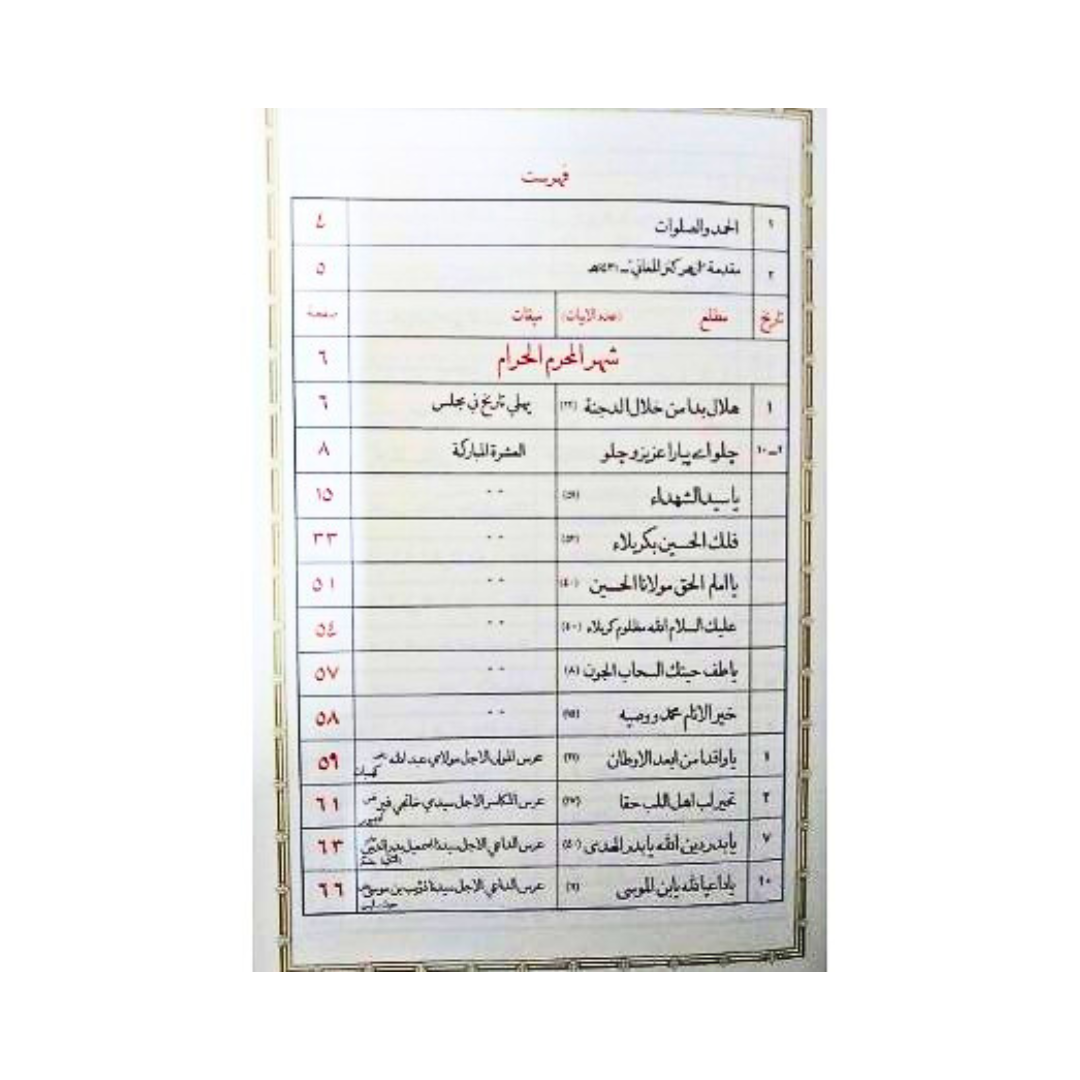 فهرست
١ الحمد والصلوات ٤
٢ مقدمة المعاني ٥
تاريخ مطلع (عدد الابيات) ميقات صفحة
شهر المحرم الحرام ٦
١ هلال بدا من خلال الدجنة پهلي تاريخ ني مجلس ٦
٢-١٠ چلو اے پيارا عزيزو چلو العشرة المباركة ٨
يا سيد الشهداء " " ١٥
فلك الحسين بكربلاء " " ٣٣
يا امام الحق مولانا الحسين (٤٠) " " ٥١
عليك السلام الله مظلوم كربلاء (٤٠) " " ٥٤
يا طف حيتك السحاب الجون (٨) " " ٥٧
خير الانام محمد ووصيه " " ٥٨
١ يا واقدا من ابعد الاوطان عرس المولى الاجل مولاي عبد الله كهمبات ٥٩
٢ تحير لب اهل اللب حقا عرس المكاسر الاجل سيدي خانجي فير ٦١
٧ يا بدر دين الله يا بدر الهدى (٤٠) عرس الداعي الاجل سيدنا اسمعيل بدر الدين ٦٣
١٠ يا داعيا لله يابن الموسى عرس الداعي الاجل سيدنا ذؤيب بن موسى ٦٦